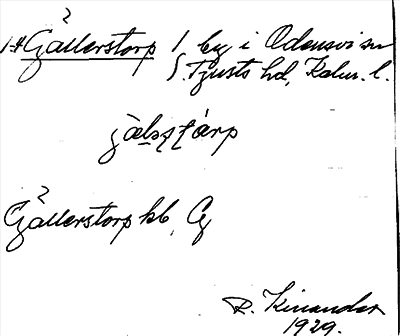 Gällerstorp 1. by i Odensvi sn
S. Tjusts hd, Kalm. l.
Gällerstorp kb,
R. Kinander
1929.